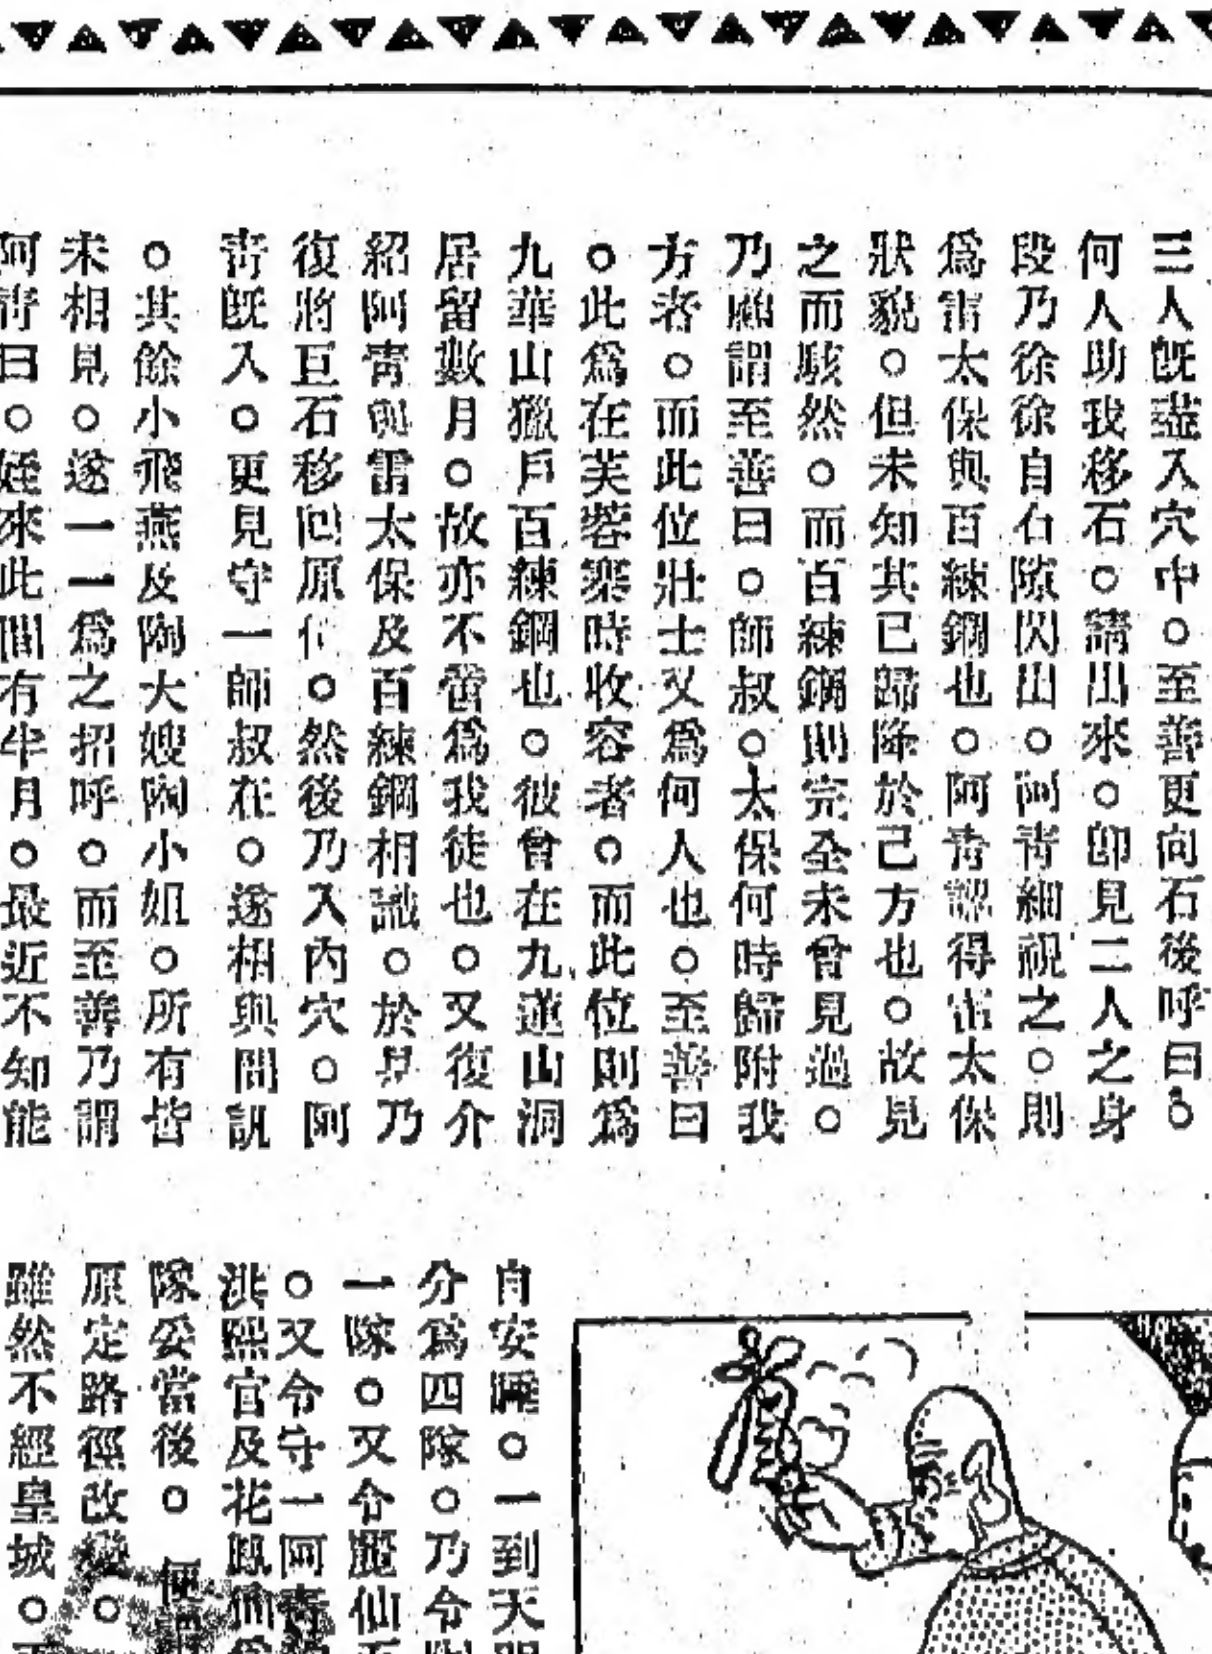 三人旣盡入穴中○至善更向石後呼曰○
何人助我移石○請出來○卽見二人之身
段乃徐徐自石隙閃出○阿青細視之○則
爲雷太保與百練鋼也○阿青認得雷太保
狀貌○但未知其已歸降於己方也○故見
之而駭然○而百練鋼則完全未曾見過○
乃顧謂至善曰○師叔○太保何時歸附我
方者○而此位壯士又爲何人也○至善曰
○此爲在芙蓉寨時收容者○而此位則爲
九華山獵戶百練鋼也○彼曾在九蓮山洞
居留數月○故亦不啻爲我徒也○又復介
紹阿青與雷太保及百練鋼相識○於是乃
復將巨石移回原位○然後乃入內穴○阿
青旣入○更見守一師叔在○遂相與問訊
○其餘小飛燕及陶大嫂陶小姐○所有皆
未相見○遂一一爲之招呼○而至善乃謂
阿青曰○姪來此間有半月○最近不知能
自安睡○一到天明
分爲四隊○乃令
一隊○又令龐仙
○又令守一阿青
洪熙官及花鳳仙爲
隊妥當後○便
原定路徑改變○
雖然不經皇城○